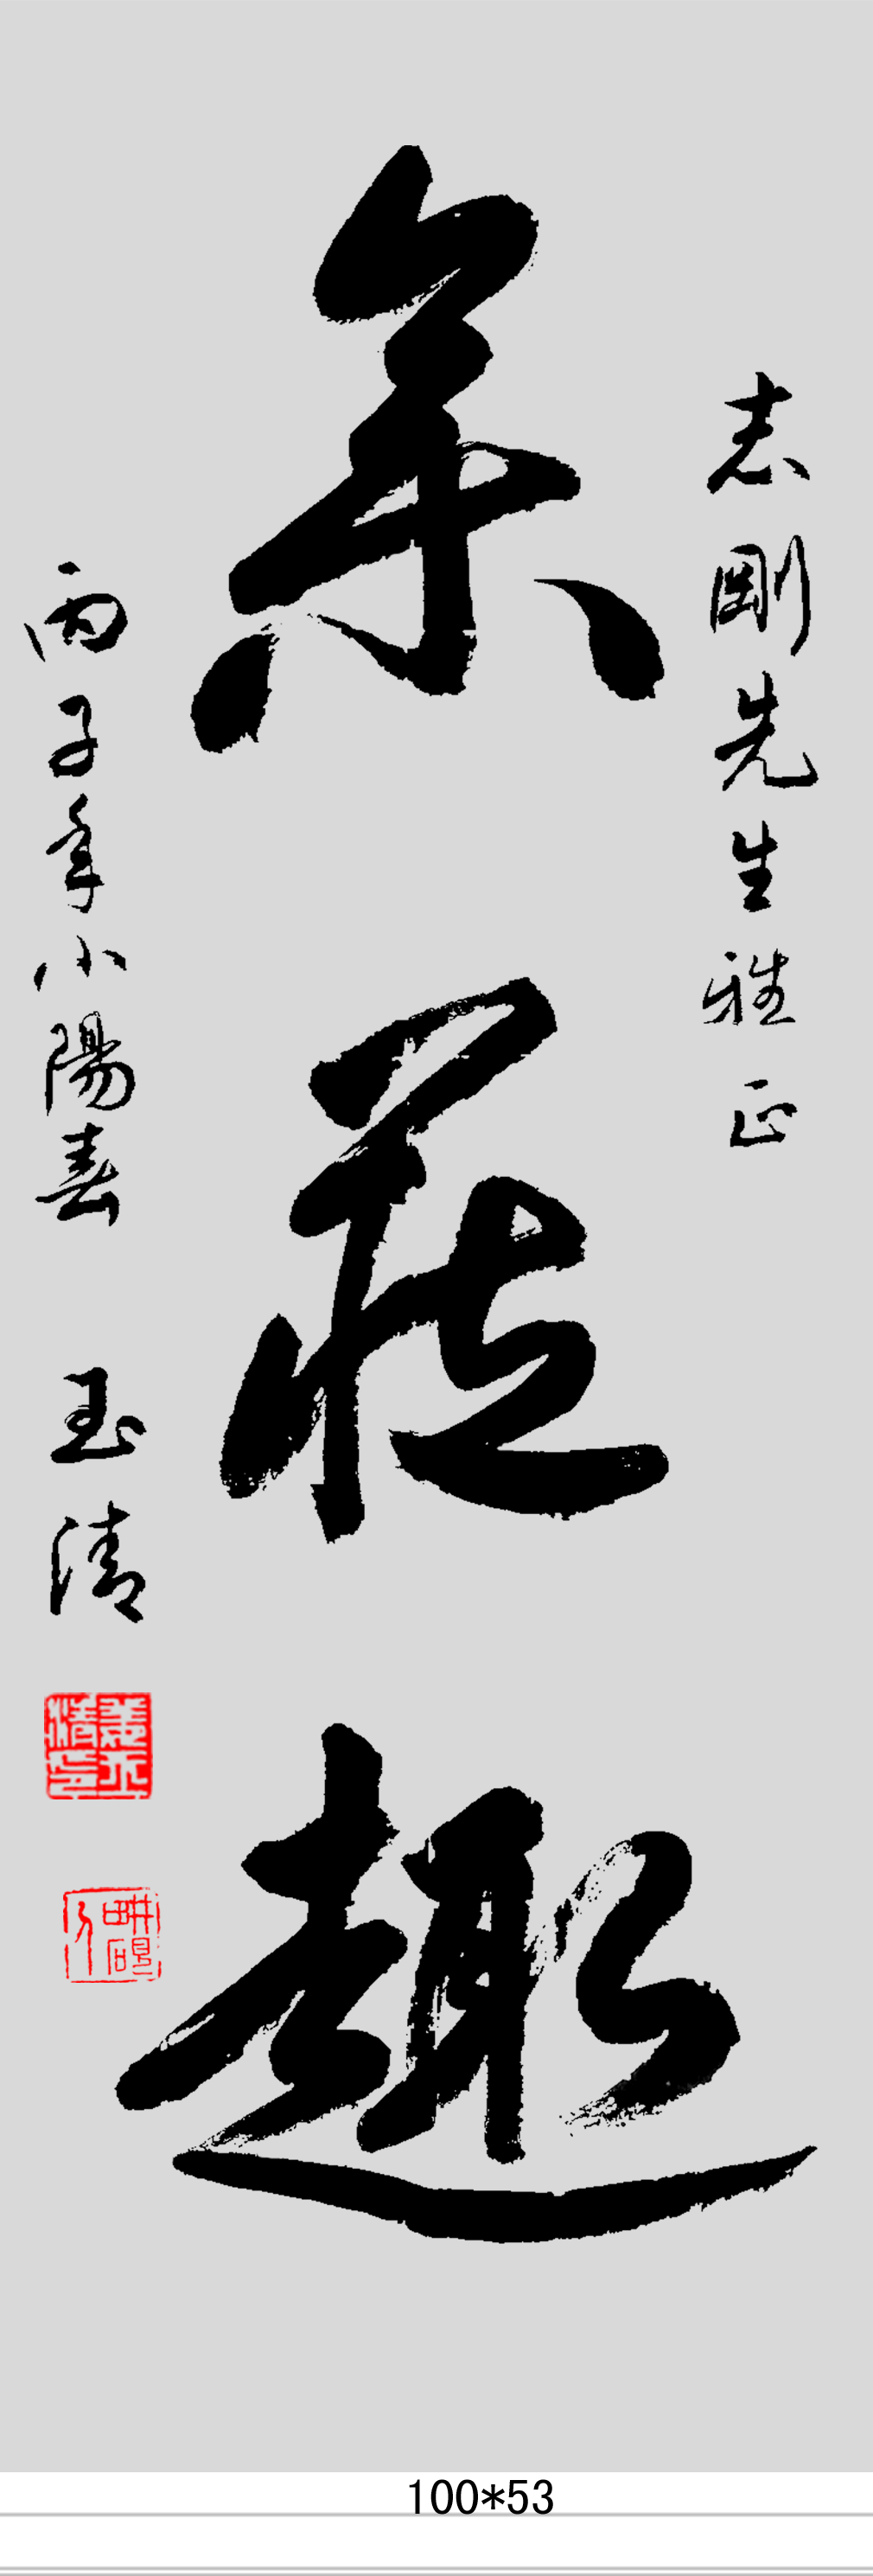 志剛先生雅正
集藏趣
丙子年小陽春 玉清
100*53